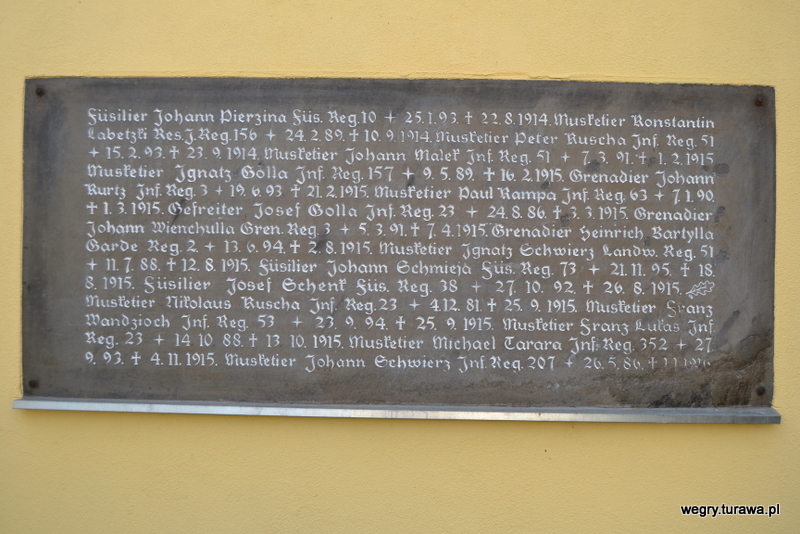 Füsilier Johann Pierzina Füs. Reg. 10 + 25.1.93. † 22.8.1914. Musketier Konstantin
Labetzki Res. J. Reg. 156 + 24.2.89. † 10.9.1914. Musketier Peter Kuscha Inf. Reg. 51
+ 15.2.93. † 23.9.1914. Musketier Johann Malek Inf. Reg. 51 + 7.3.91. † 1.2.1915
Musketier Ignatz Golla Inf. Reg. 157 + 9.5.89. † 16.2.1915. Grenadier Johann
Kurtz Inf. Reg. 3 + 19.6.93 † 21.2.1915. Musketier Paul Kampa Inf. Reg. 63 + 7.1.90.
† 1.3.1915. Gefreiter Josef Golla Inf. Reg. 23 + 24.8.86. † 3.3.1915. Grenadier
Johann Wienchulla Gren. Reg. 3 + 5.3.91. † 7.4.1915. Grenadier Heinrich Bartylla
Garde Reg. 2. + 13.6.94. † 2.8.1915. Musketier Ignatz Schwierz Landw. Reg. 51
+ 11.7.88. † 12.8.1915. Füsilier Johann Schmieja Füs. Reg. 73 + 21.11.95. † 18
8.1915. Füsilier Josef Schenk Füs. Reg. 38 + 27.10.92. † 26.8.1915.
Musketier Nikolaus Kuscha Inf. Reg. 23 + 4.12.81. † 25.9.1915. Musketier Franz
Wandzioch Inf. Reg. 53 + 23.9.94. † 25.9.1915. Musketier Franz Lukas Inf.
Reg. 23 + 14 10 88. † 13.10.1915. Musketier Michael Tarara Inf. Reg. 352 + 27
9.93. † 4.11.1915. Musketier Johann Schwierz Inf. Reg. 207 + 26.5.86. †
wegry.turawa.pl